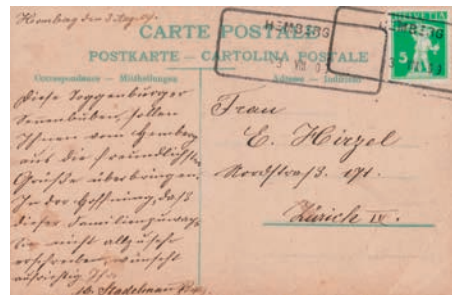 Hemberg den 3. Aug. 09.
CARTE POSTALE
POSTKARTE – CARTOLINA POSTALE
Correspondance – Mittheilungen
Adresse – Indirizzo
HEMBERG
HEMBERG
HELVETIA
5
Diese Toggenburger
Sennenbuben, sollen
Ihnen vom Hemberg
aus die freundlichsten
Grüße überbringen.
In der Hoffnung, daß
dieser Familienzuwachs
Sie nicht allzusehr
erschrecken, wünscht
aufrichtig Ihr
Stadelmann
Frau
E. Hirzel
Nordstraß. 191.
Zürich IV.